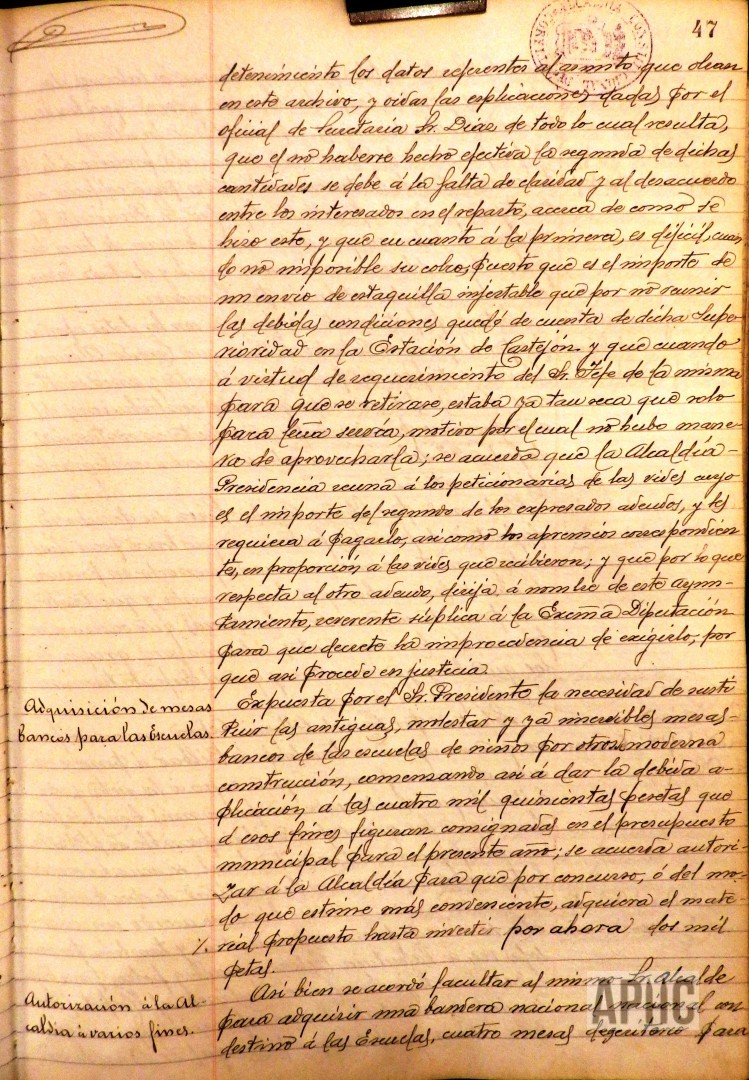 47
detenimiento los datos referentes al asunto que obran
en este archivo, y oidas las esplicaciones dadas por el
oficial de Secretaría Sr. Diaz de todo lo cual resulta,
que el no haberse hecho efectiva la segunda de dichas
cantidades se debe á la falta de claridad y al desacuerdo
entre los interesados en el reparto, acerca de como se
hizo este, y que en cuanto á la primera, es dificil, cuan
do no imposible su cobro, puesto que es el importe de
un envio de estaquilla injertable que por no reunir
las debidas condiciones quedó de cuenta de dicha Supe
rioridad en la Estación de Castejón y que cuando
á virtud de requerimiento del Sr. Jefe de la misma
para que se retirase, estaba ya tan seca que solo
para leña servía, motivo por el cual no hubo mane-
ra de aprovecharla; se acuerda que la Alcaldía-
Presidencia reuna á los peticionarias de las vides cuyo
es el importe del segundo de los expresados adeudos, y les
requiera á pagarlo, asi como los apremios correspondien
tes, en proporción á las vides que recibieron; y que por lo que
respecta al otro adeudo, dirija, á nombre de este ayun-
tamiento, reverente súplica á la Excma Diputación
para que decrete la improcedencia de exigirlo, por
que asi procede en justicia.
Adquisición de mesas
bancos para las Escuelas.
Expuesta por el Sr. Presidente la necesidad de susti
tuir las antiguas, molestar y ya inservibles mesas-
bancos de las escuelas de niños por otros moderna
construcción, comenzando asi á dar la debida a-
plicación á las cuatro mil quinientas pesetas que
á esos fines figuran consignadas en el presupuesto
municipal para el presente año; se acuerda autori-
zar á la Alcaldía para que por concurso, ó del mo-
do que estime más conveniente, adquiera el mate-
%. rial propuesto hasta invertir por ahora dos mil
petas.
Autorización á la Al-
caldía á varios fines.
Asi bien se acordó facultar al mismo Sr. Alcalde
para adquirir una bandera nacional nacional con
destino á las Escuelas, cuatro mesas de escritorio para
APJC